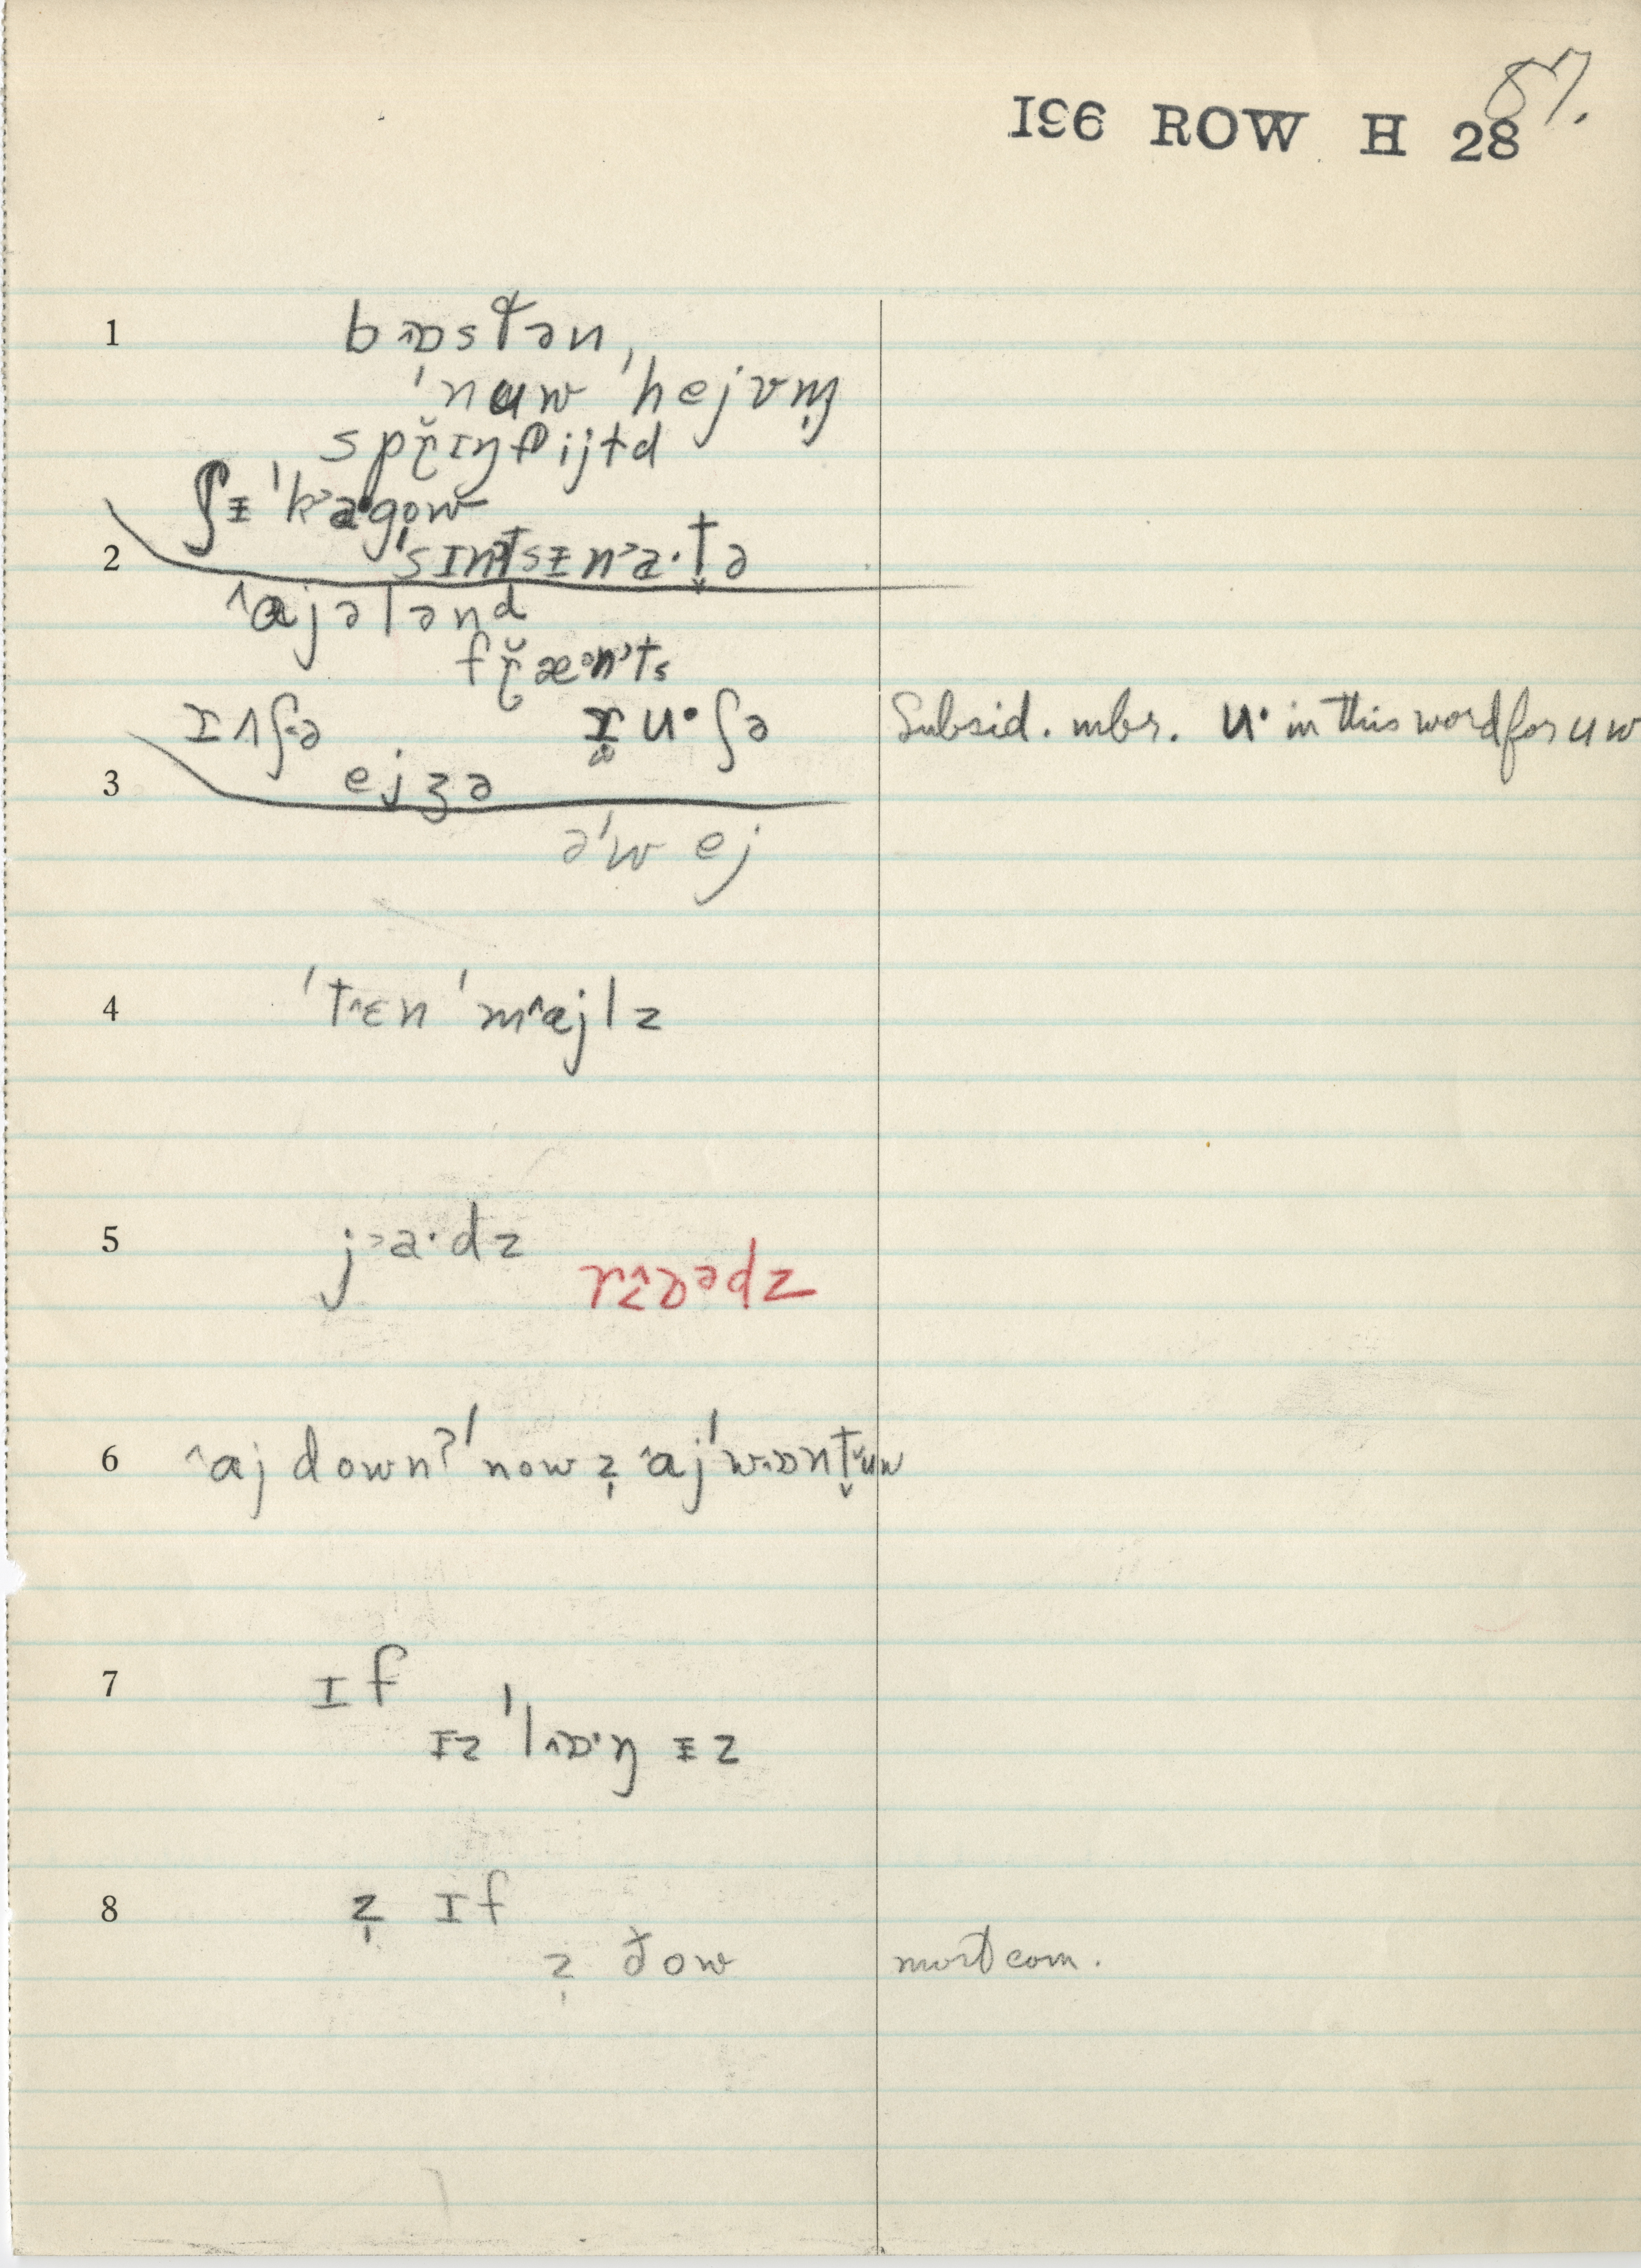 196 ROW H 28
87.
1 bɒstən,
ˈnuw ˈhejvm̩
spɹ̆ɪŋfijɨd
ʃᵻ ˈkɑgow
2 ˈsɪntsᵻnɑ·t̬ə
^ɑjələnd
fɹ̆æənts
ɹʌʃə ɹu·ʃə Subsid. mbr. u· in this word for uw
3 ejʒə
əˈwej
4 ˈtɛn ˈmɑjlz
5 jɑ·dz
rɒədz
6 ^ɑj downʔ ˈnow z̩ ɑjˈwɒnt̬uw
7 ɪf
ɪz ˈlɒ·ŋ ᵻz
8 z̩ ɪf
z̩ ðow most com.